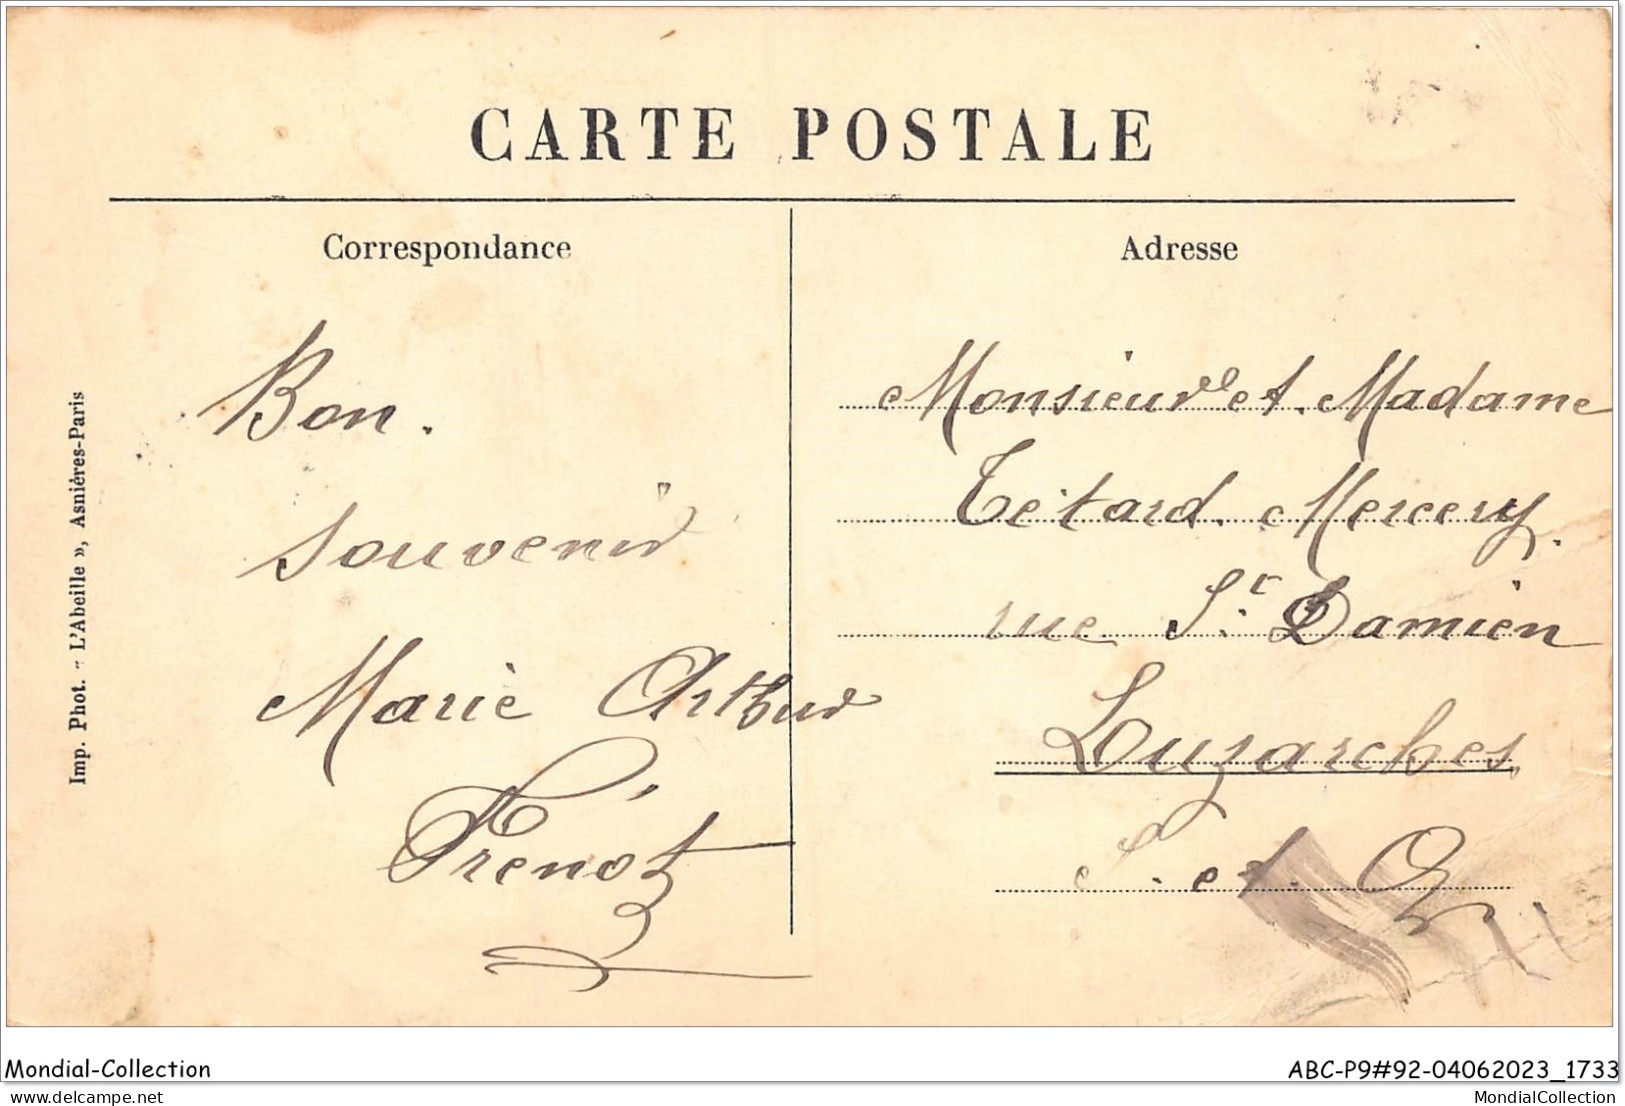 CARTE POSTALE
Correspondance
Adresse
Imp. Phot. - L'Abeille », Asnières-Paris
Bon.
souvenir
Marie Arthur
Frénot
Monsieur et. Madame
Tetard. Mercery.
rue St. Damien
Luzarches
S. et. O.
Mondial-Collection
ABC-P9#92-04062023_1733
www.delcampe.net
MondialCollection